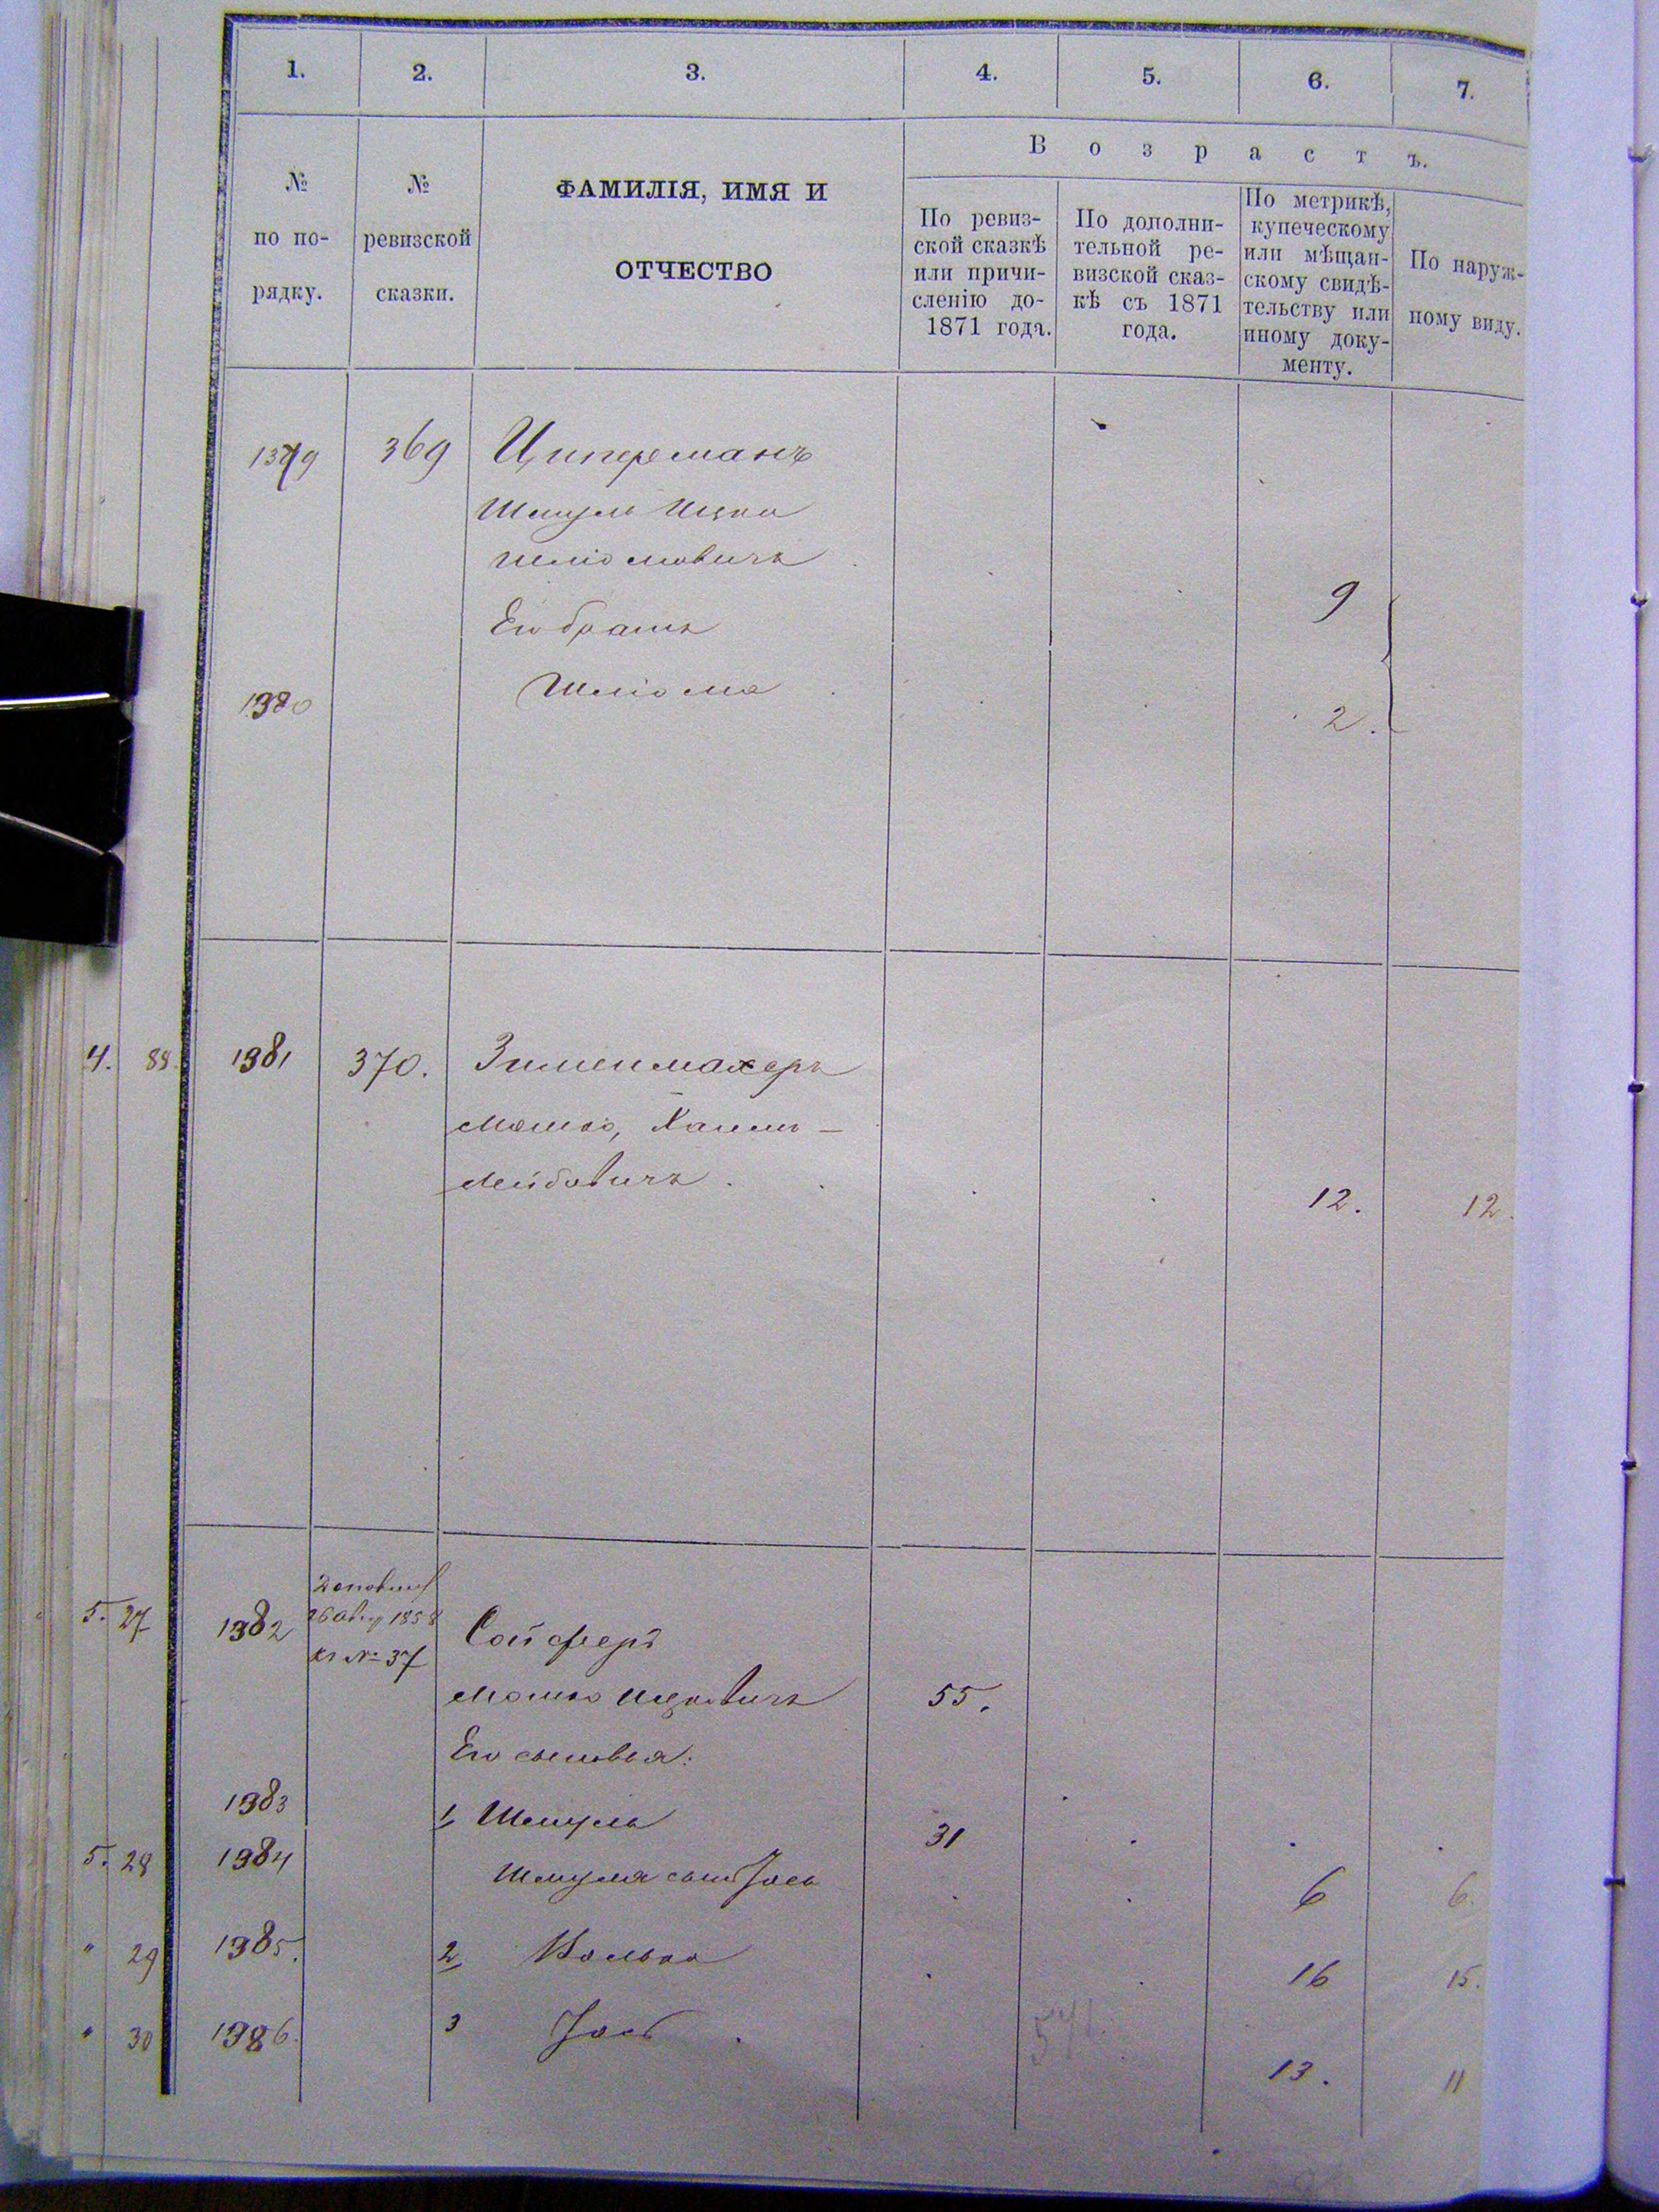 1. 2. 3. 4. 5. 6. 7.
№ по порядку.
№ ревизской сказки.
ФАМИЛІЯ, ИМЯ И
ОТЧЕСТВО
Возрастъ.
По ревиз-
ской сказкѣ
или причи-
сленію до-
1871 года.
По дополни-
тельной ре-
визской сказ-
кѣ съ 1871
года.
По метрикѣ,
купеческому
или мѣщан-
скому свидѣ-
тельству или
иному доку-
менту.
По наруж-
ному виду.
1379 369 Циперманъ
Шмуль Ицко
Шліомовичъ 9
Его братъ
1380 Шліома 2.
4. 88. 1381 370. Зименмахеръ
Мошко, Хаимъ-
Лейбовичъ. 12. 12.
5. 27 1382 1858 № 37 Сойферъ
Мошко Ицковичъ 55.
Его сыновья:
1383 1, Шмуль 31
5. 28 1384 Шмуля сынъ Іось 6 6.
" 29 1385. 2, Волько 16 15.
" 30 1386. 3 Іось 13. 11